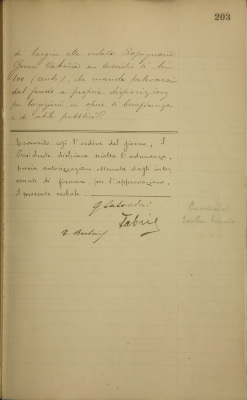 203
di largire alla vedova
Gnoni Caterina un sussidio di Lire
100 (cento), che manda prelevarsi
dal fondo a propria disposizione
per largizioni in opere di beneficenza
e di utile pubblico.
Esaurito così l'ordine del giorno, il
Presidente dichiara sciolta l'adunanza,
previa autorizzazione ottenuta dagli inter
venuti di firmare, per l'approvazione,
il presente verbale.
G Salvadori
Fabri